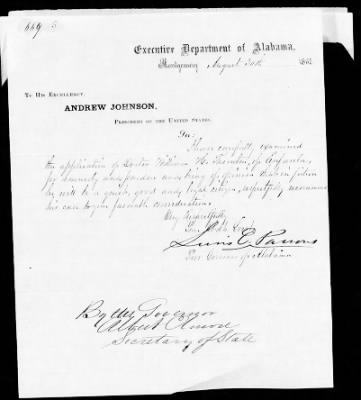 669 5
Executive Department of Alabama,
Montgomery August 30th 186
To His Excellency,
ANDREW JOHNSON,
President of the United States.
Sir:
I have carefully examined
the application of Doctor William H. Thornton, of Eufaula,
for amnesty and pardon and being of opinion that in future
he will be a quiet, good and loyal citizen, respectfully recommend
his case to your favorable consideration.
Very Respectfully
Your Obdt. Servt.
Lewis E. Parsons
Prov Governor of Alabama
By the Governor
Albert Elmore
Secretary of State